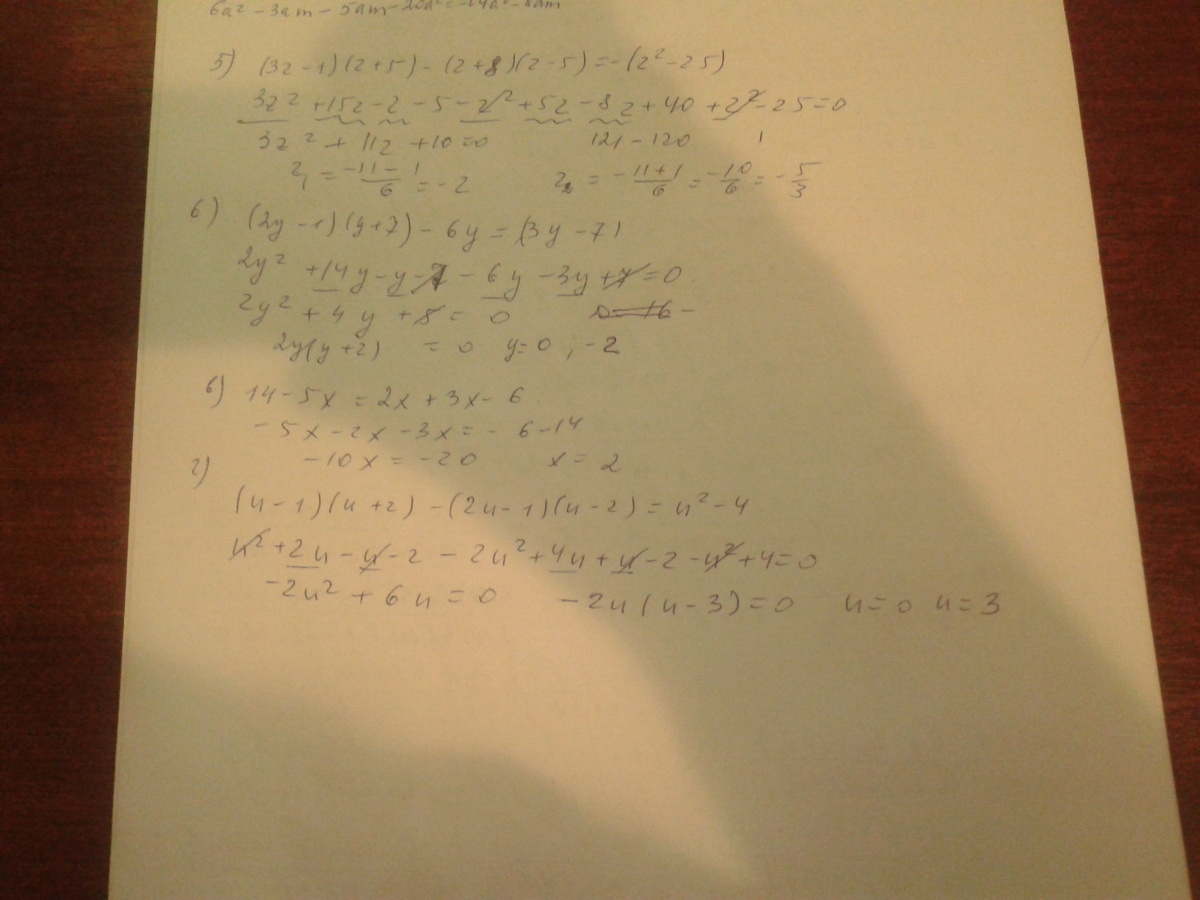 6a² - 3am - 5am - 20a² = -14a² - 8am
5) (3z - 1)(z + 5) - (z + 8)(z - 5) = -(z² - 25)
3z² + 15z - z - 5 - z² + 5z - 8z + 40 + z² - 25 = 0
3z² + 11z + 10 = 0 121 - 120 1
z₁ = -11 - 1 / 6 = -2 z₂ = -11 + 1 / 6 = -10 / 6 = -5 / 3
б) (2y - 1)(y + 7) - 6y = (3y - 7)
2y² + 14y - y - 7 - 6y - 3y + 7 = 0
2y² + 4y + 8 = 0 D = 16 -
2y(y + 2) = 0 y = 0 ; -2
в) 14 - 5x = 2x + 3x - 6
-5x - 2x - 3x = -6 - 14
-10x = -20 x = 2
г)
(u - 1)(u + 2) - (2u - 1)(u - 2) = u² - 4
u² + 2u - u - 2 - 2u² + 4u + u - 2 - u² + 4 = 0
-2u² + 6u = 0 -2u(u - 3) = 0 u = 0 u = 3